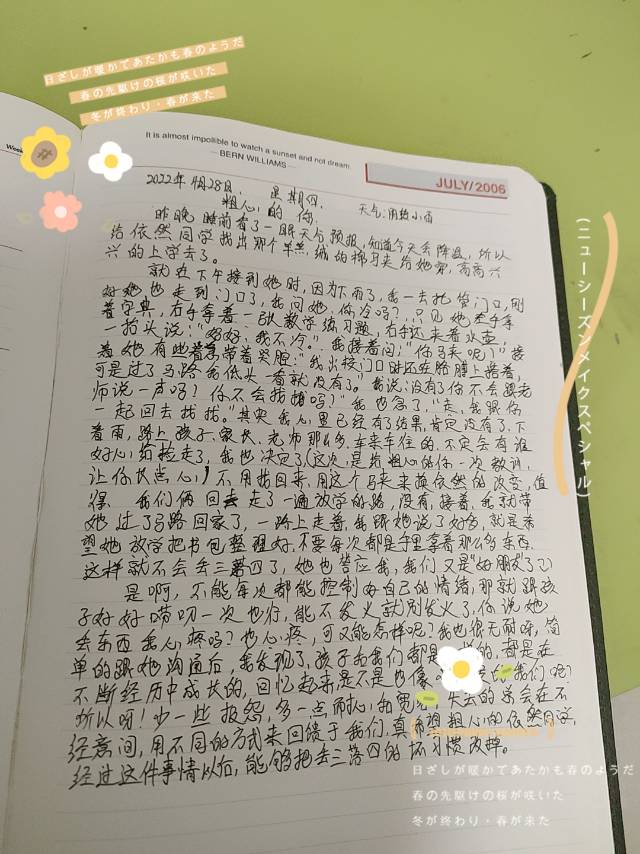 日ざしが暖かであたかも春のようだ
春の先駆けの桜が咲いた
冬が終わり・春が来た
It is almost impollible to watch a sunset and not dream.
—BERN WILLIAMS—
JULY/2006
2022年4月28日. 星期四. 天气:阴转小雨
粗心的你
昨晚睡前看了一眼天气预报,知道今天会降温,所以
给依然同学找出那个羊羔绒的棉马夹给她穿,高高兴
兴的上学去了。
就在下午接到她时,因为下雨了,我一去托管门口,刚
好她也走到门口了,我问她:你冷吗?,只见她左手拿
着字典,右手拿着一张数学练习题,右手还夹着水壶,
一抬头说:"妈妈,我不冷。"我接着问:"你马夹呢?"接
着她有些着急带着哭腔:"我出校门口时还在胳膊上搭着,
可是过了马路我低头一看就没有了。我说:没有了你不会跟老
师说一声吗?你不会找找吗?"我也急了,"走,我跟你
一起回去找找。"其实我心里已经有了结果,肯定没有了.下
着雨,路上孩子、家长、老师那么多,车来车往的,不定会有谁
好心给捡走了,我也决定了(这次,是给粗心的你一次教训,
让你长点心)不用找回来,用这个马夹来换依然的改变,值
得. 我们俩回去走了一遍放学的路,没有,接着,我就带
她过了马路回家了,一路上走着,我跟她说了好多,就是希
望她放学把书包整理好,不要每次都是手里拿着那么多东西.
这样就不会丢三落四了,她也答应我,我们又是"好朋友"了
是啊,不能每次都能控制好自己的情绪,那就跟孩
子好好唠叨一次也行,能不发火就别发火了,你说她
丢东西我心疼吗?也心疼,可又能怎样呢?我也很无耐呀,简
单的跟她沟通后,我发现了,孩子和我们都是 的,都是在
不断经历中成长的,回忆起来是不是也像 我们呢?
所以呀!少一些报怨,多一点耐心和宽 失去的总会在不
经意间,用不同的方式来回馈于我们,真 粗心的依然同学,
经过这件事情以后,能够把丢三落四的坏习惯改掉。
(ニューシーズンメイクスペシャル)
日ざしが暖かであたかも春のようだ
春の先駆けの桜が咲いた
冬が終わり・春が来た